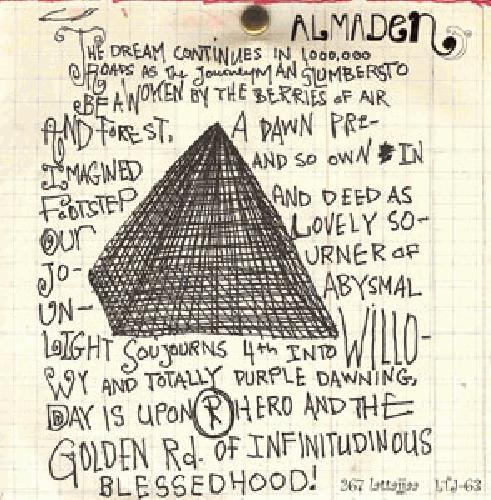 ALMADEN
THE DREAM CONTINUES IN 1,000,000
ROADS AS the JourneyMAN SLUMBERS TO
BE A WOKEN BY THE BERRIES OF AIR
AND FOREST. A DAWN PRE-
IMAGINED AND SO OWN IN
FOOTSTEP AND DEED AS
OUR LOVELY SO-
JO- URNER OF
UN- ABYSMAL
LOIGHT SOUJOURNS 4th INTO WILLO-
WY AND TOTALLY PURPLE DAWNING,
DAY IS UPON R HERO AND THE
GOLDEN Rd. OF INFINITUDINOUS
BLESSEDHOOD!
367 lattajjaa LTJ-63